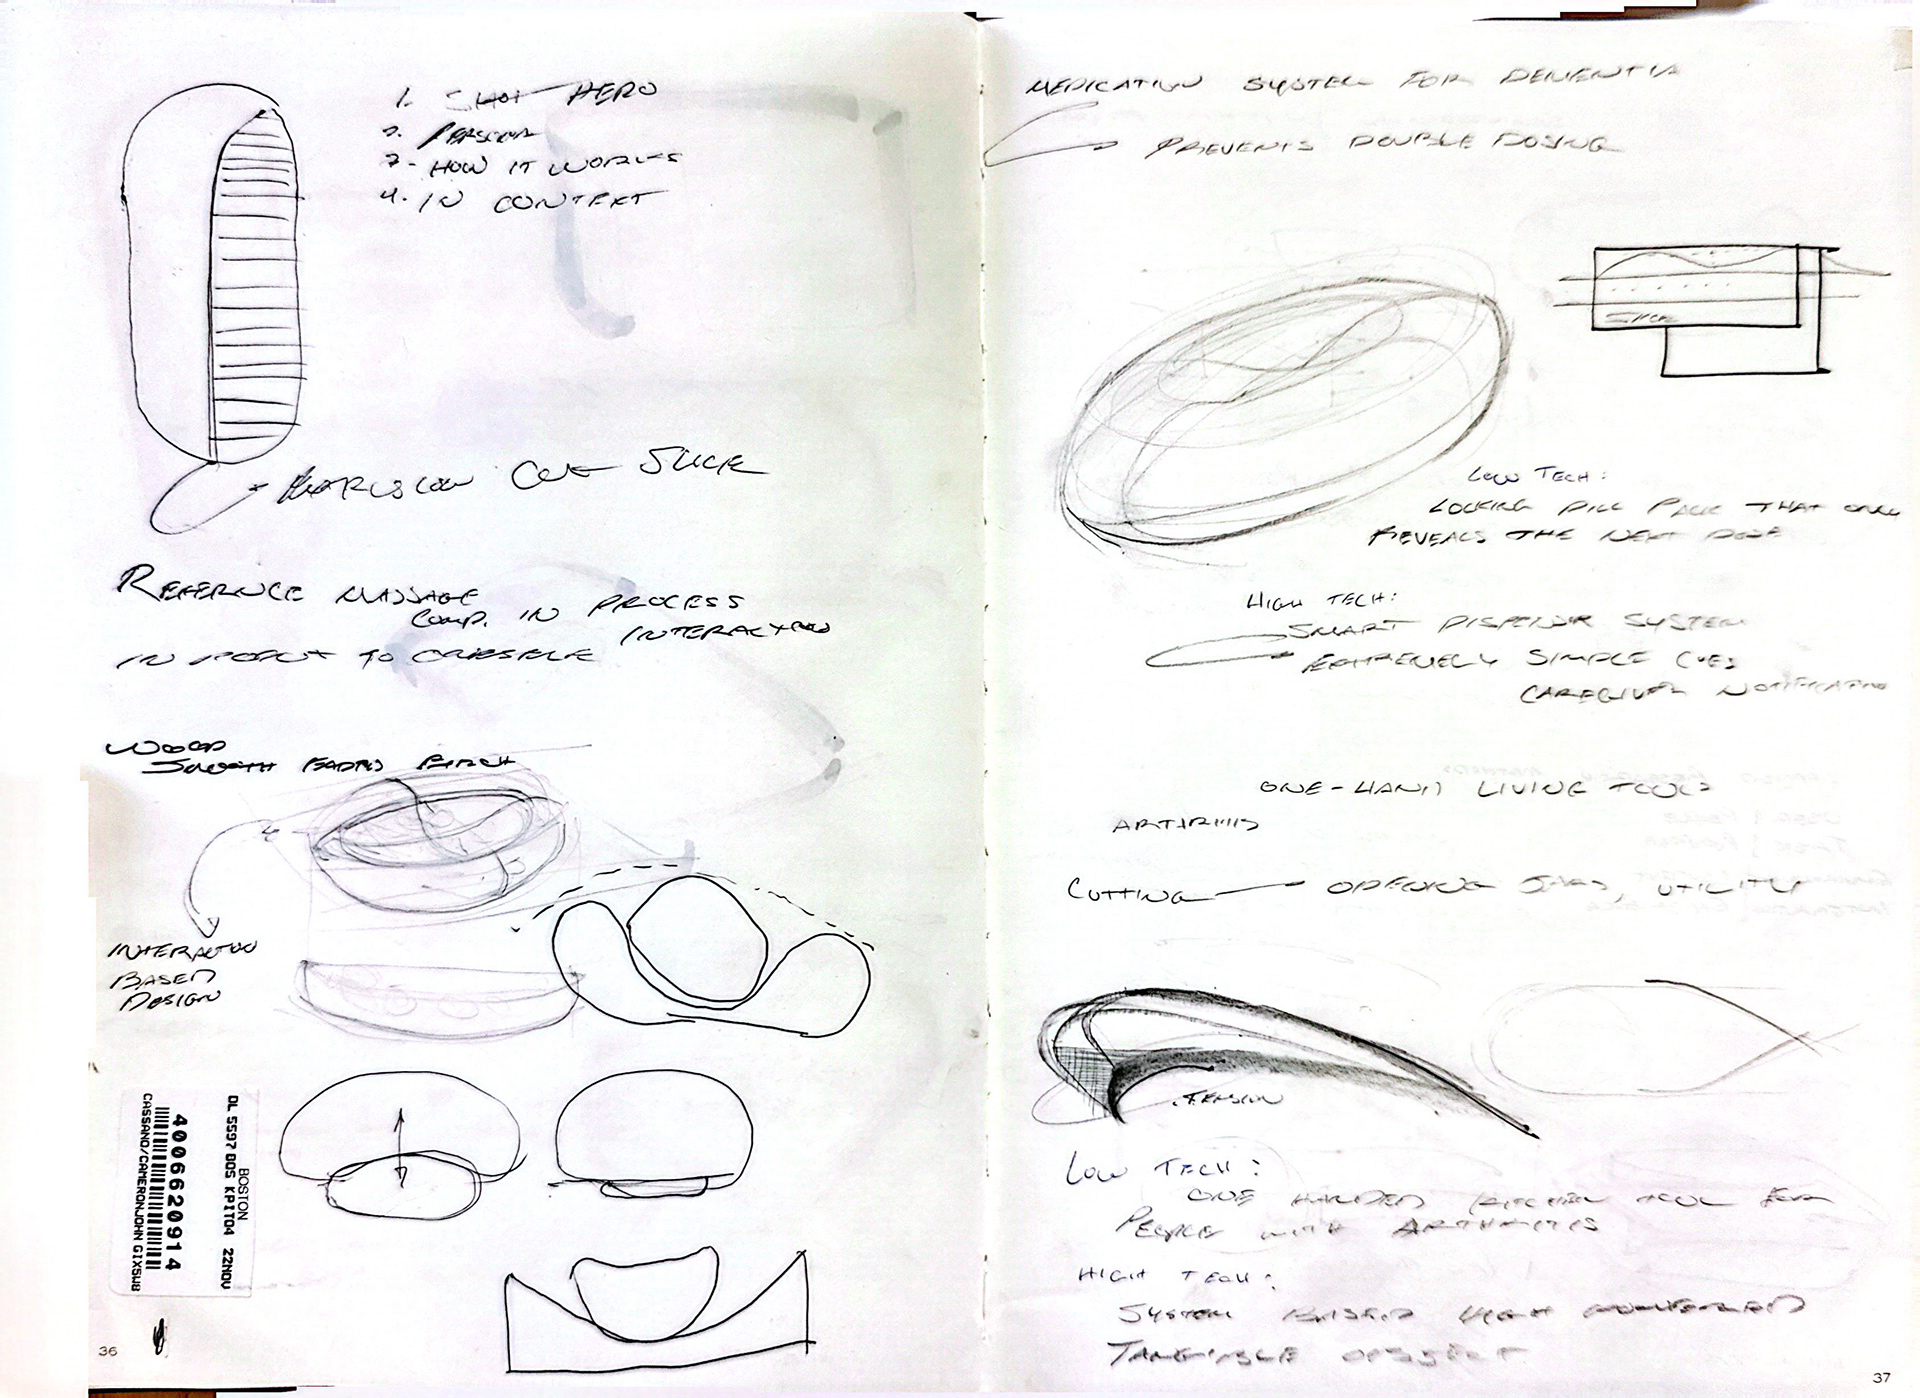 1. SHOT HERO
2. PERSONA
3. HOW IT WORKS
4. IN CONTEXT
CUT SLICE
REFERENCE MASSAGE
COMP. IN PROCESS
INTERACTION
IN TO
WOOD
SMOOTH BIRCH
INTERACTION
BASED
DESIGN
BOSTON
DL 5597 DOS KPIT04 22NOV
4006620914
CASSANO/CAMERONJOHN GIX5W8
36
MEDICATION SYSTEM FOR DEMENTIA
PREVENTS DOUBLE DOSING
LOW TECH:
LOCKING PILL PACK THAT ONLY
REVEALS THE NEXT DOSE
HIGH TECH:
SMART DISPENSR SYSTEM
EXTREMELY SIMPLE CUES
CAREGIVER NOTIFICATION
ONE-HAND LIVING TOOLS
ARTHRITIS
CUTTING OPENING JARS, UTILITY
TENSION
LOW TECH:
ONE HANDED KITCHEN TOOL FOR
PEOPLE WITH ARTHRITIS
HIGH TECH:
SYSTEM BASED
TANGIBLE OBJECT
37